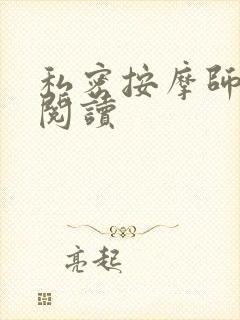 私密按摩師
閱讀
亮起